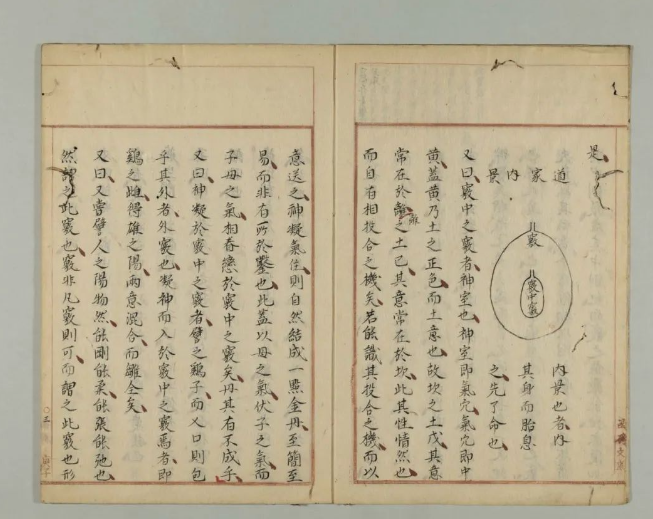 是
道家內景
竅
竅中竅
內景也者內
其身而胎息
之先了命也
又曰竅中之竅者神室也神室即氣穴氣穴即中
黃蓋黃乃土之正色而土意也故坎之土戊其意
常在於離之土已其意常在於坎此其性情然也
而自有相投合之機矣若能識其投合之機而以
意送之神凝氣住則自然結成一點金丹至簡至
易而非有所於鑿也此蓋以母之氣伏子之氣而
子母之氣相眷戀於竅中之竅矣丹其有不成乎
又曰神凝於竅中之竅者譬之鷄子而又口則包
乎其外者外竅也凝神而入於竅中之竅焉者即
鷄之雌得雄之陽兩意混合而雛全矣
又曰又嘗譬人之陽物然能剛能柔能張能弛也
然謂之此竅也竅非凡竅則可而謂之此竅也形